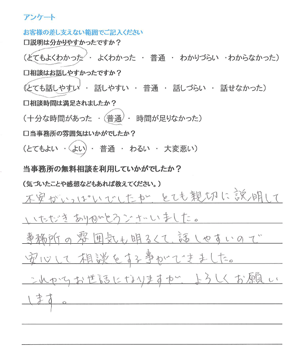 アンケート
お客様の差し支えない範囲でご記入ください
□説明は分かりやすかったですか?
(とてもよくわかった ・ よくわかった ・ 普通 ・ わかりづらい ・わからなかった)
□相談はお話しやすかったですか?
(とても話しやすい ・ 話しやすい ・ 普通 ・ 話しづらい ・ 話せなかった)
□相談時間は満足されましたか?
(十分な時間があった ・ 普通 ・ 時間が足りなかった)
□当事務所の雰囲気はいかがでしたか?
(とてもよい ・ よい ・ 普通 ・ わるい ・ 大変悪い)
当事務所の無料相談を利用していかがでしたか?
(気づいたことや感想などもあれば教えてください。)
不安がいっぱいでしたが とても親切に説明して
いただきありがとうございました。
事務所の雰囲気も明るくて、話しやすいので
安心して相談をする事ができました。
これからお世話になりますが よろしくお願い
します。